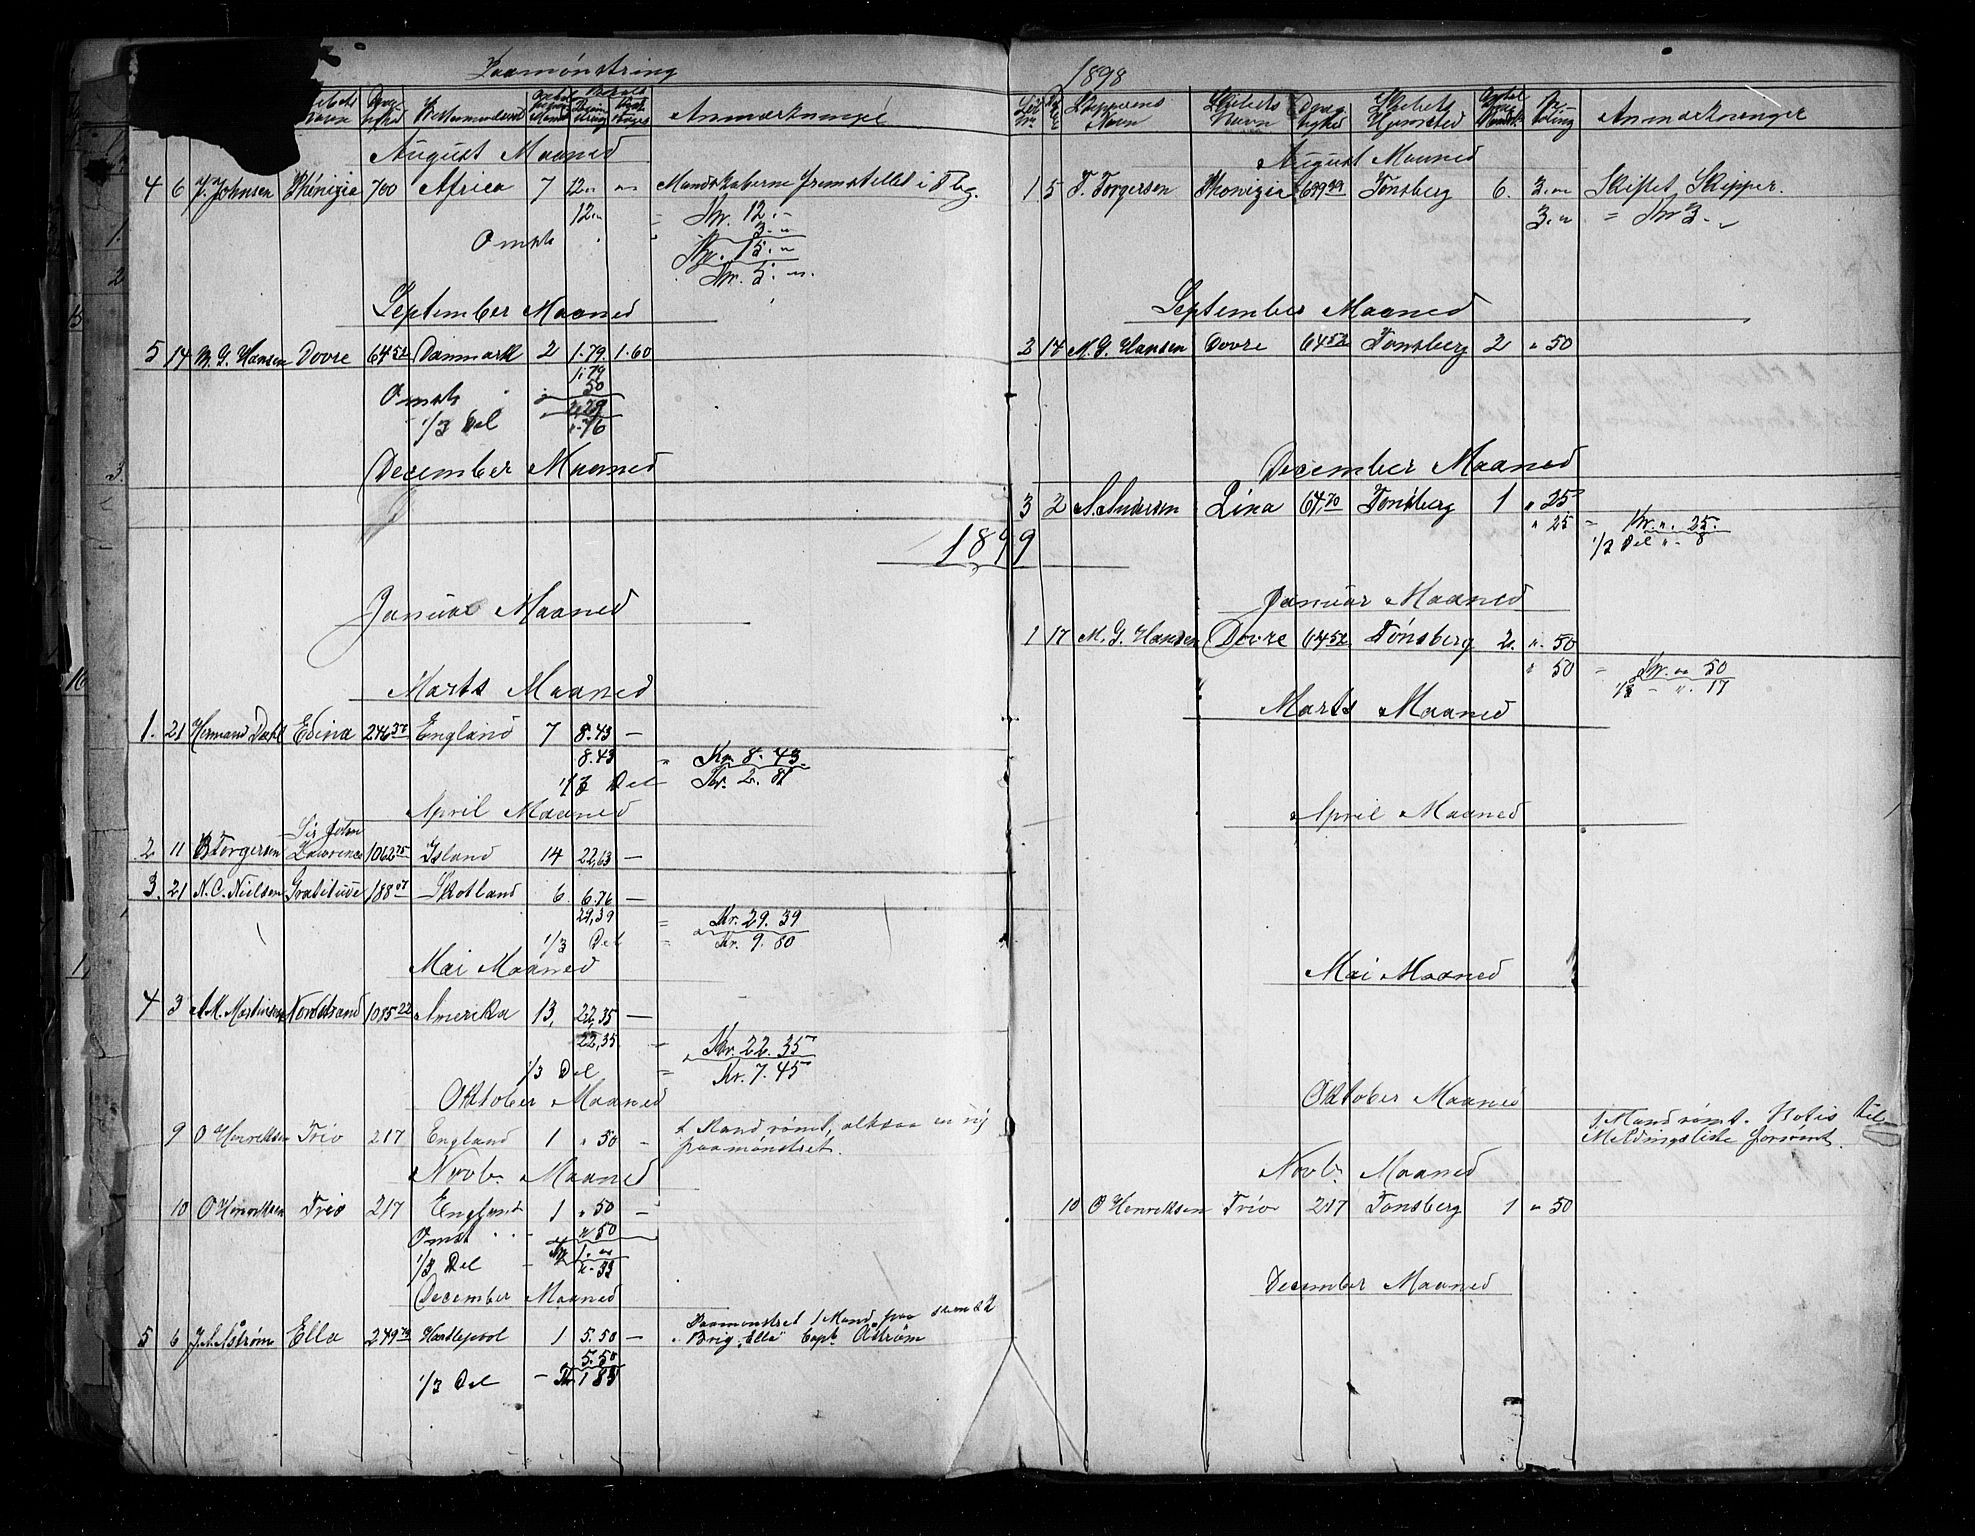 Paamønstring
Skibets Navn Dræg-tighed Bestemmelsessted Anmærkninger
August Maaned
4 6 J. Johnsen Phönizia 700 Africa 7 12 „ „ Mandskaberne fremstillet i Tbg.
12 „ = Kr. 12. -
Omk 3. „
Kr. 15. „
Kr. 5. „
September Maaned
5 14 M. G. Hansen Dovre 64 52 Danmark 2 1.79. 1.60
1.79
Omk 50
2,29
1/3 Del „.76
December Maaned
1899
Januar Maaned
Marts Maaned
1. 21 Hermand Dahl Edina 246 37 England 7 8.43 —
8.43 „ Kr. 8. 43.
1/3 Del Kr. 2. 81
April Maaned
2 11 B Torgersen Sir John Lawrence 1062 75 Island 14 22,63 —
3. 21 N. C. Nielsen Gratitude 188 07 Skotland 6 6.76 —
29,39 = Kr. 29. 39
1/3 Del = Kr. 9. 80
Mai Maaned
4 3 A M. Martinsen Nordstrand 1085 22 Amerika 13, 22,35 —
22,35 = Kr. 22. 35
1/3 Del = Kr. 7. 45
Oktober Maaned
9 O Henriksen Trio 217 England 1 „ 50 - 1 Mand rømt, altsaa en ny
paamønstret.
Novb. Maaned
10 O Henriksen Trio 217 England 1 „ 50 —
Omk „ 50
Kr 1. „
1/3 Del - „. 33
December Maaned
5 6 J. A. Åstrøm Ella 249 79 Hartlepool 1 5.50 — Paamønstret 1 Mand paa svensk
Brig „Ella" Capt. Åstrøm
5.50
1/3 Del — Kr 1 83
1898
Skipperens Navn Skibets Navn Dræg-tighed Skibets Hjemsted Be-taling Anmærkninger
August Maaned
1 5 T. Torgersen Phonizia 699 39 Tonsberg 6. 3. „ Skiftet Skipper.
3. „ = Kr 3. „
September Maaned
2 14 M. G. Hansen Dovre 64 52 Tonsberg 2 „ 50
December Maaned
3 2 A. Andersen Lina 64,70 Tonsberg 1 „ 25
„ 25 = Kr. „. 25.
1/3 Del „. 8
Januar Maaned
1 17 M. G. Hansen Dovre 64 52 Tønsberg 2. „. 50
„ 50 = Kr. „ 50
1/3 - „. 17
Marts Maaned
April Maaned
Mai Maaned
Oktober Maaned
1 Mand rømt. Notis til
Meldingsliste forsømt.
Novb. Maaned
10 O Henriksen Trio 217 Tonsberg 1 „ 50
December Maaned